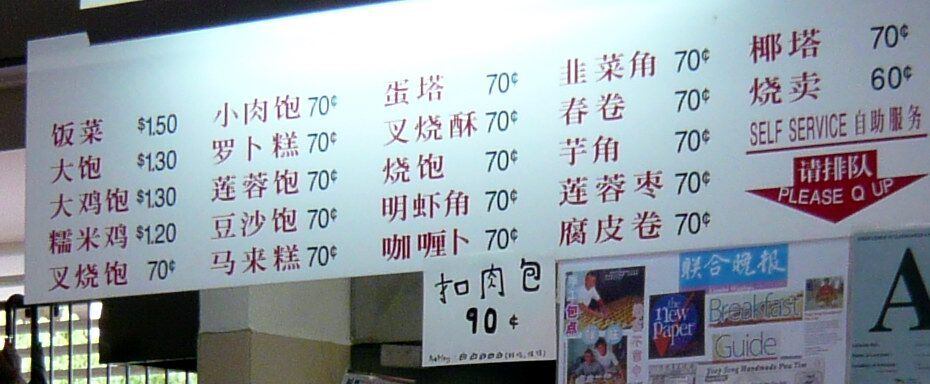 饭菜 $1.50
大饱 $1.30
大鸡饱 $1.30
糯米鸡 $1.20
叉烧饱 70¢
小肉饱 70¢
罗卜糕 70¢
莲蓉饱 70¢
豆沙饱 70¢
马来糕 70¢
蛋塔 70¢
叉烧酥 70¢
烧饱 70¢
明虾角 70¢
咖喱卜 70¢
韭菜角 70¢
春卷 70¢
芋角 70¢
莲蓉枣 70¢
腐皮卷 70¢
椰塔 70¢
烧卖 60¢
SELF SERVICE 自助服务
请排队
PLEASE Q UP
扣肉包
90¢
联合晚报
the
new
paper
Breakfast
Guide
A